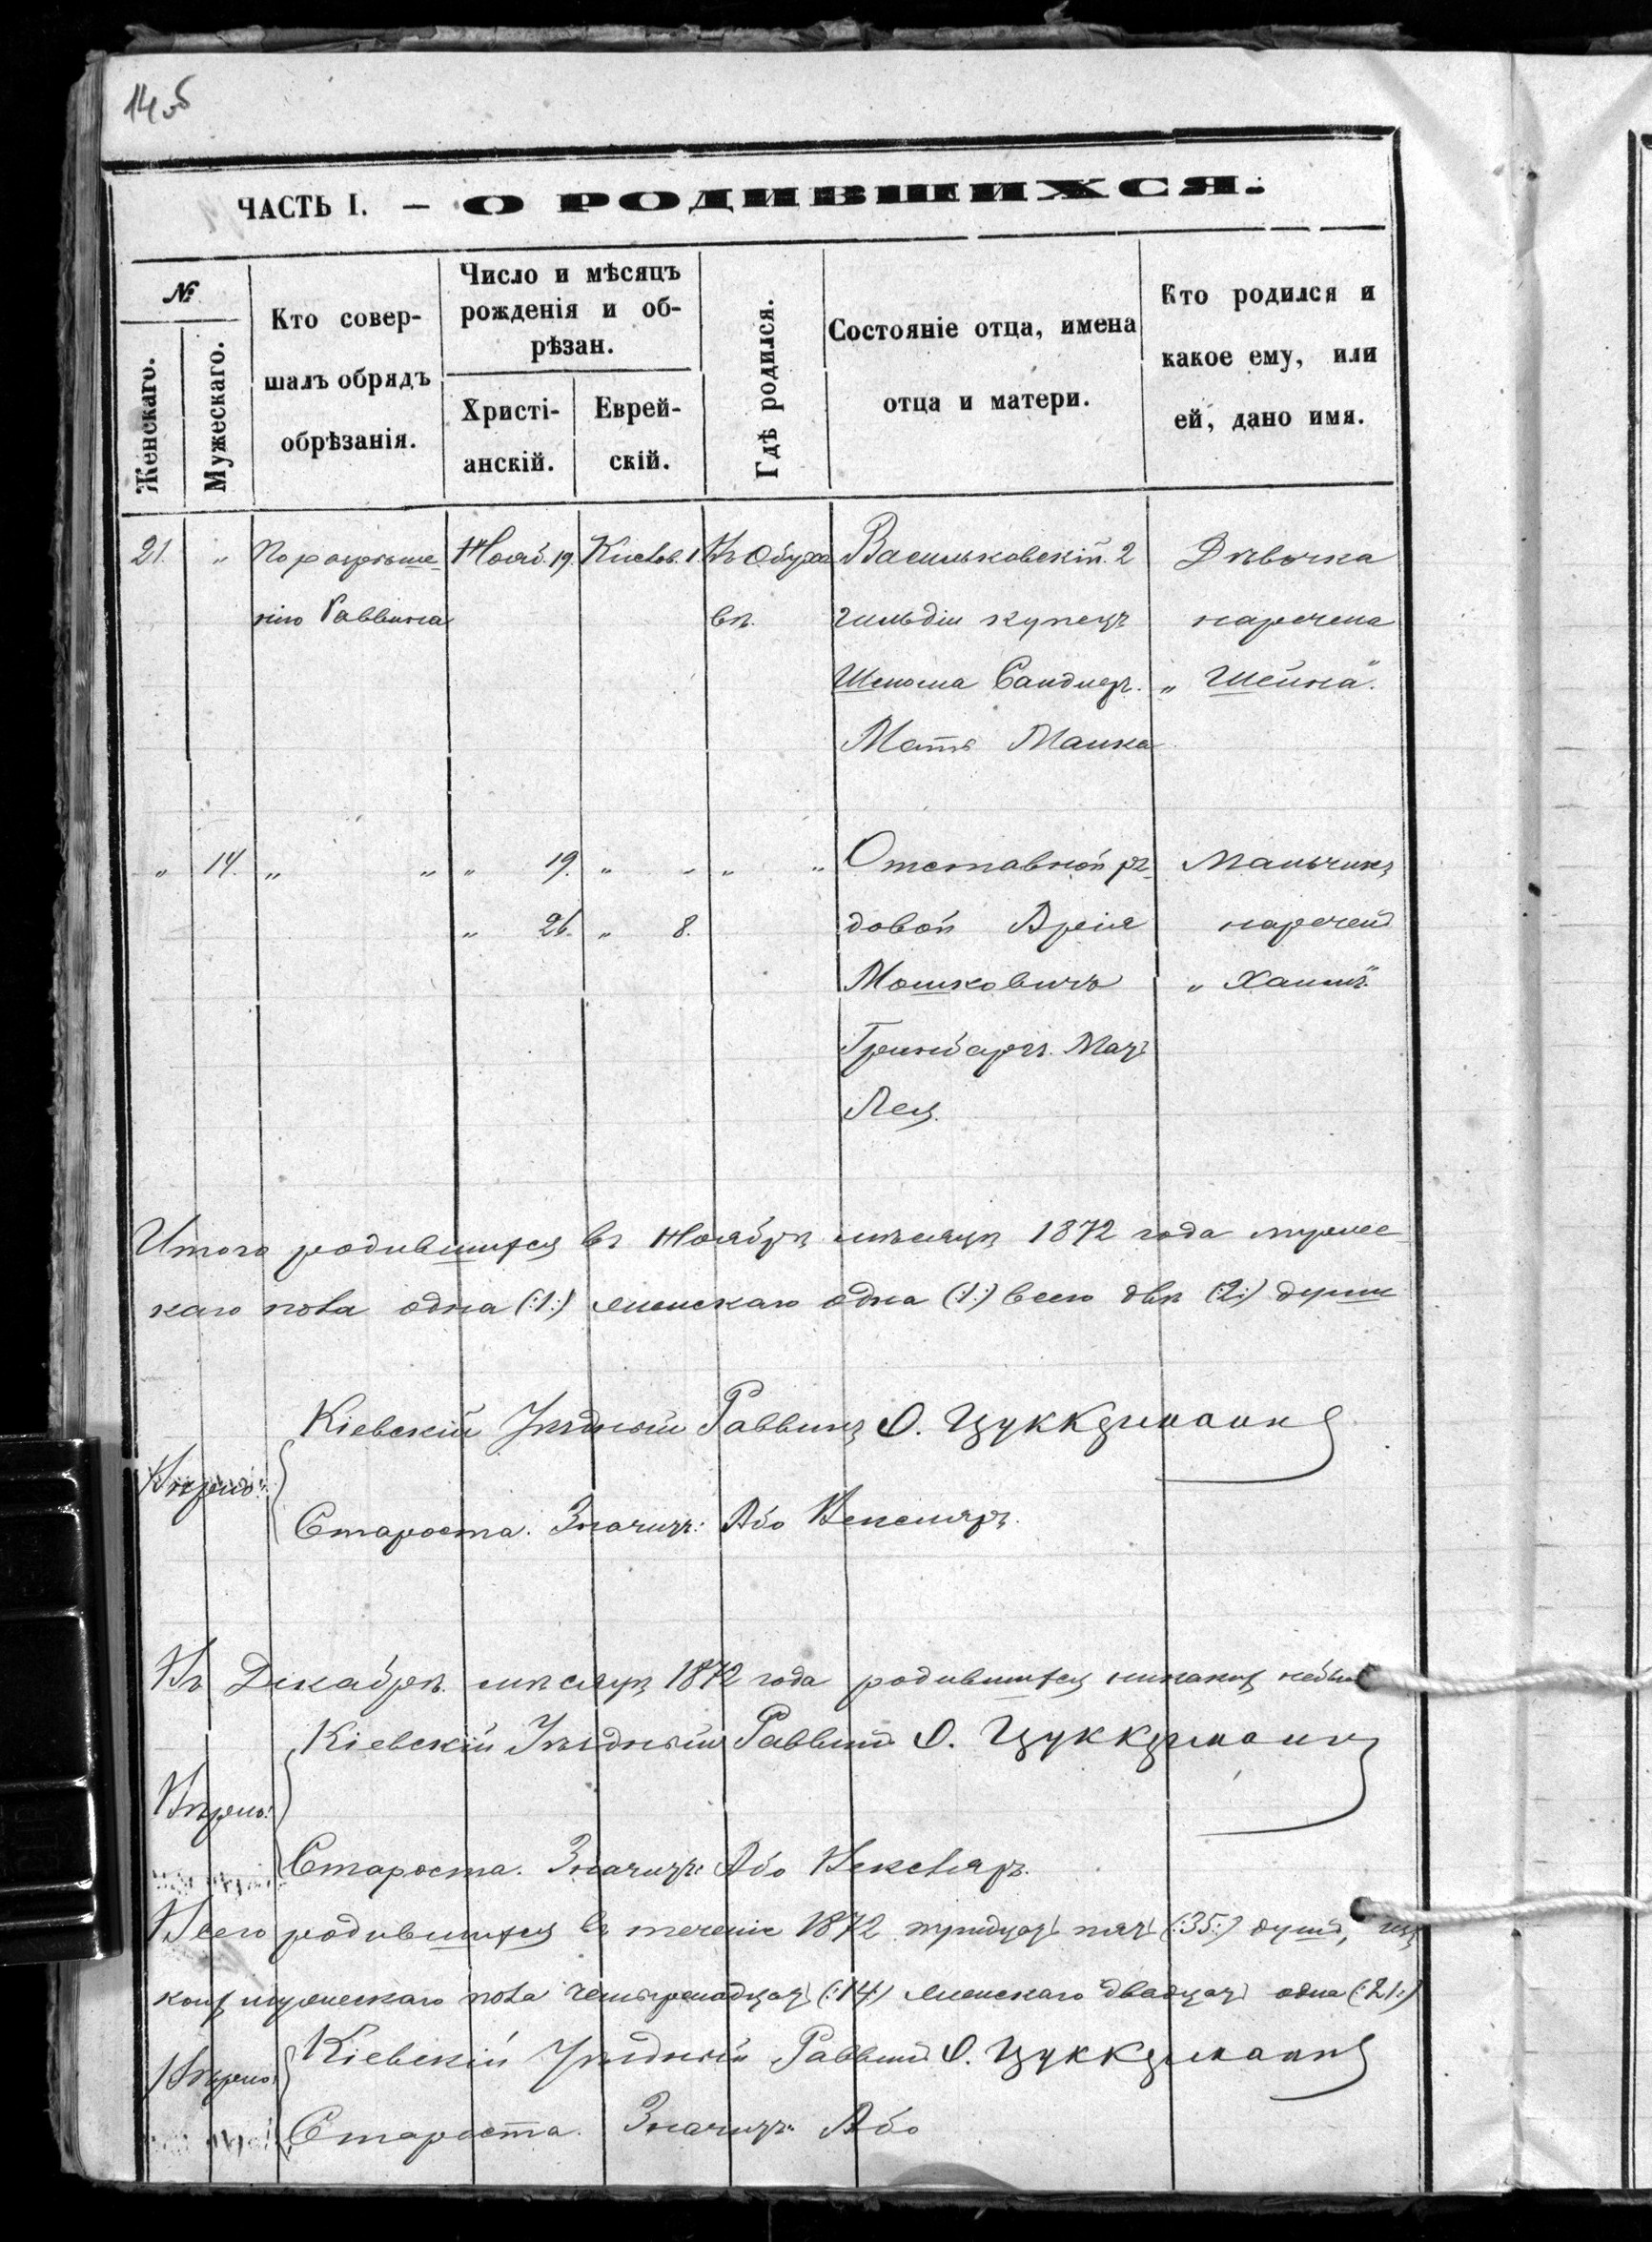 145
ЧАСТЬ I. — О РОДИВШИХСЯ.
№
Женскаго.
Мужескаго.
Кто совер-
шалъ обрядъ
обрѣзанія.
Число и мѣсяцъ
рожденія и об-
рѣзан.
Христі-
анскій.
Еврей-
скій.
Гдѣ родился.
Состояніе отца, имена
отца и матери.
Кто родился и
какое ему, или
ей, дано имя.
21. " По разрѣше- Нояб. 19. Кислев. 1. Въ Обухо Васильковскій 2 Дѣвочка
нію Раввина вѣ. гильдіи купецъ наречена
Сандлеръ. „Шейна".
Мать Малка
" 14. " " " 19. " " " " Отставной ря- Мальчикъ
" 26. " 8. довой Аренъ нареченъ
Мошковичъ „Хаимъ"
Гринбергъ. Мать
Лея.
Итого родившихся въ Ноябрѣ мѣсяцѣ 1872 года мужес-
каго пола одна (:1:) женскаго одна (:1:) всего двѣ (:2:) души
Кіевскій Уѣздный Раввинъ О. Цуккерманъ
Вѣрно:
Староста. Значитъ: Або Векслеръ.
Въ Декабрѣ мѣсяцѣ 1872 года родившихся никакихъ небыло
Кіевскій Уѣздный Раввинъ О. Цуккерманъ
Вѣрно:
Староста. Значитъ: Або Векслеръ.
Всего родившихся въ теченіе 1872 тридцать пять (:35:) душъ, изъ
коихъ мужескаго пола четырнадцать (:14:) женскаго двадцать одна (:21:)
Кіевскій Уѣздный Раввинъ О. Цуккерманъ
Вѣрно:
Староста. Значитъ: Або